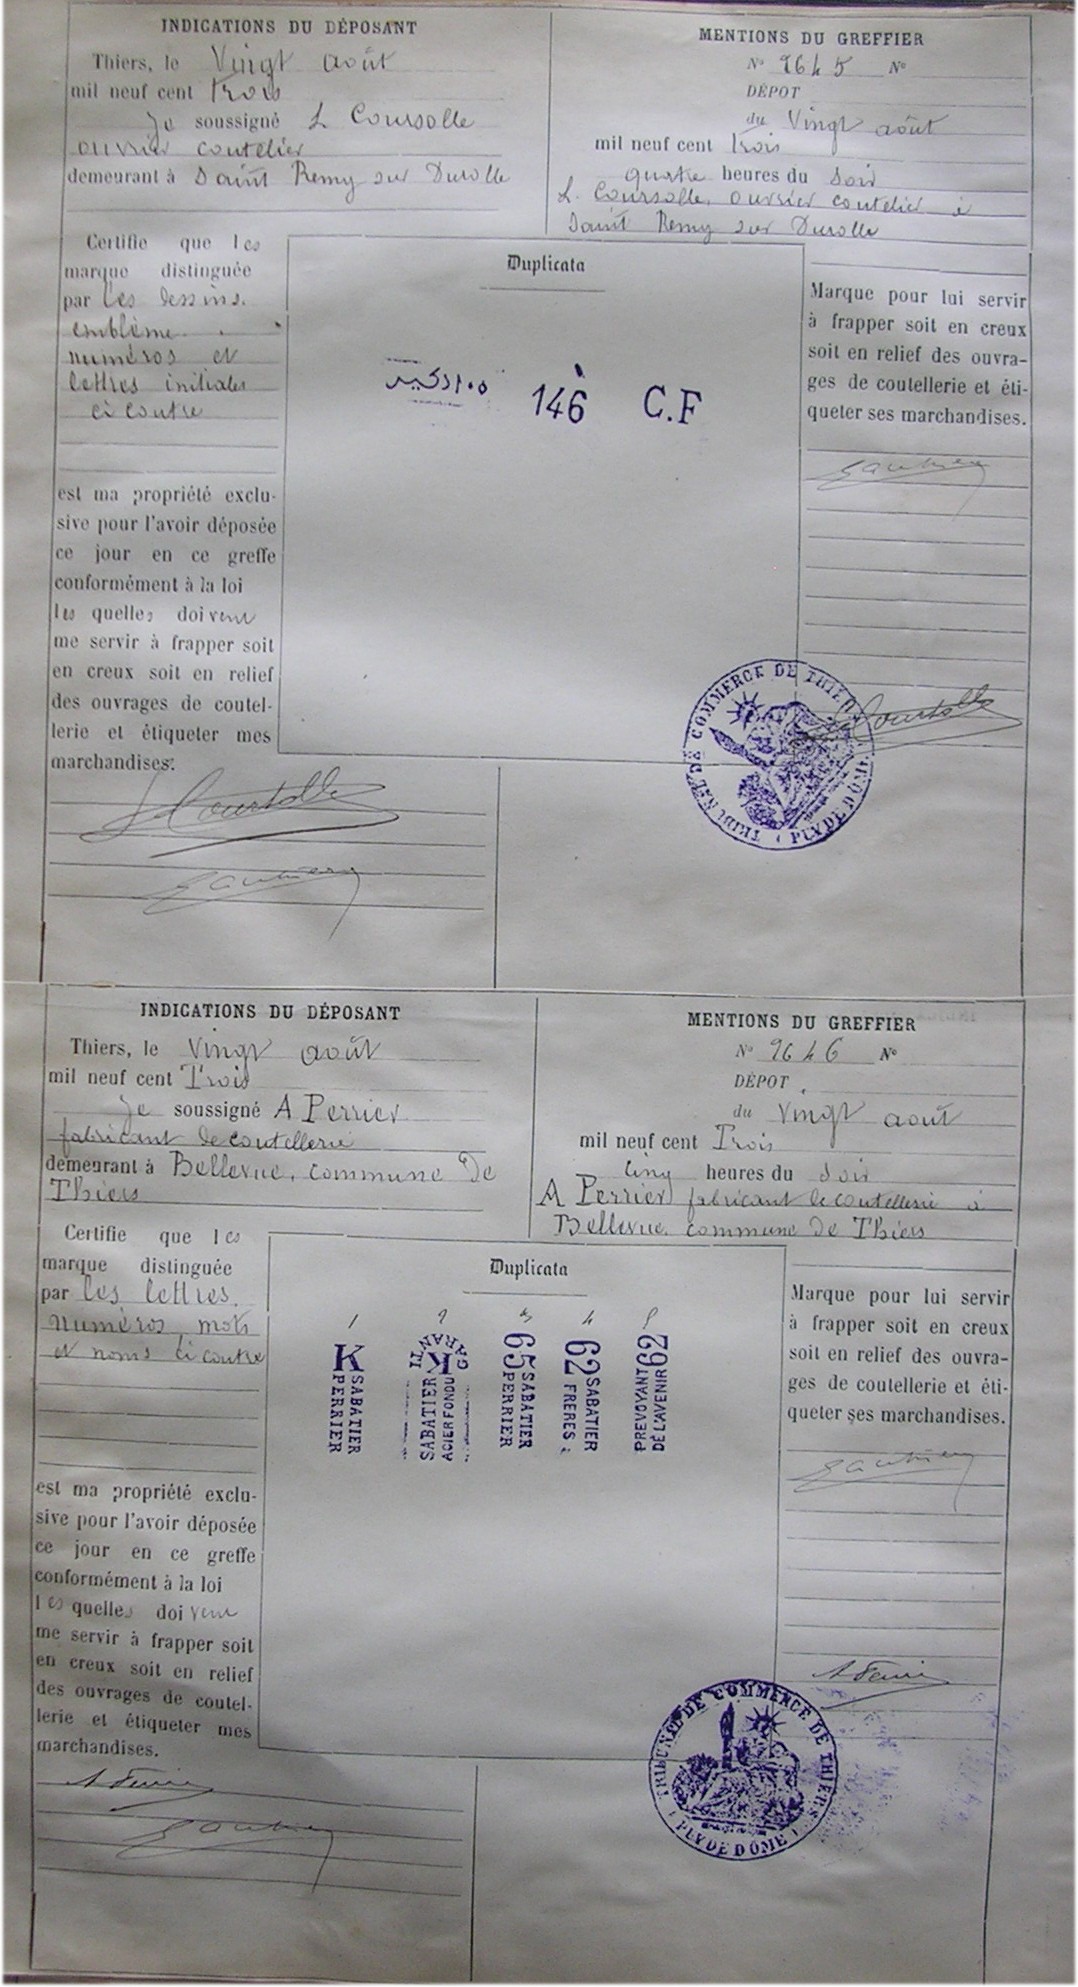 INDICATIONS DU DÉPOSANT
Thiers, le Vingt août
mil neuf cent trois
Je soussigné L Coursolle
ouvrier coutelier
demeurant à Saint Remy sur Durolle
Certifie que les
marque distinguée
par les dessins.
emblème
numéros et
lettres initiales
ci contre
est ma propriété exclu-
sive pour l'avoir déposée
ce jour en ce greffe
conformément à la loi
les quelles doivent
me servir à frapper soit
en creux soit en relief
des ouvrages de coutel-
lerie et étiqueter mes
marchandises.
L Coursolle
MENTIONS DU GREFFIER
N° 2645 N°
DÉPOT
du Vingt août
mil neuf cent trois
quatre heures du soir
L. Coursolle, ouvrier coutelier à
Saint Remy sur Durolle
Duplicata
146 C.F
Marque pour lui servir
à frapper soit en creux
soit en relief des ouvra-
ges de coutellerie et éti-
queter ses marchandises.
L Coursolle
TRIBUNAL DE COMMERCE DE THIERS
PUY DE DÔME
INDICATIONS DU DÉPOSANT
Thiers, le Vingt août
mil neuf cent Trois
Je soussigné A Perrier
fabricant de coutellerie
demeurant à Bellevue, commune de
Thiers
Certifie que les
marque distinguée
par les lettres,
numéros, mots
et noms ci contre
est ma propriété exclu-
sive pour l'avoir déposée
ce jour en ce greffe
conformément à la loi
les quelles doivent
me servir à frapper soit
en creux soit en relief
des ouvrages de coutel-
lerie et étiqueter mes
marchandises.
MENTIONS DU GREFFIER
N° 2646 N°
DÉPOT
du Vingt août
mil neuf cent Trois
Cinq heures du soir
A Perrier fabricant de coutellerie à
Bellevue, commune de Thiers
Duplicata
1 2 3 4 5
K SABATIER
PERRIER
GARANTI
K
SABATIER
ACIER FONDU
65 SABATIER
PERRIER
62 SABATIER
FRERES
292 PREVOYANT
DE L'AVENIR
Marque pour lui servir
à frapper soit en creux
soit en relief des ouvra-
ges de coutellerie et éti-
queter ses marchandises.
TRIBUNAL DE COMMERCE DE THIERS
PUY DE DÔME